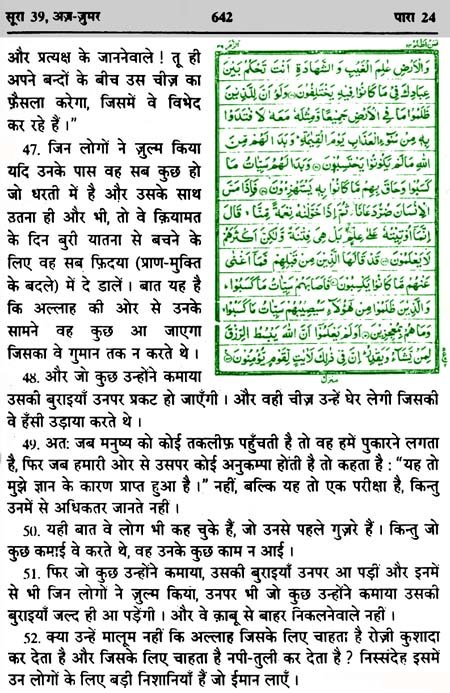 सूरा 39, अज़-ज़ुमर 642 पारा 24
और प्रत्यक्ष के जाननेवाले ! तू ही
अपने बन्दों के बीच उस चीज़ का
फ़ैसला करेगा, जिसमें वे विभेद
कर रहे हैं ।”
47. जिन लोगों ने ज़ुल्म किया
यदि उनके पास वह सब कुछ हो
जो धरती में है और उसके साथ
उतना ही और भी, तो वे क़ियामत
के दिन बुरी यातना से बचने के
लिए वह सब फ़िदया (प्राण-मुक्ति
के बदले) में दे डालें । बात यह है
कि अल्लाह की ओर से उनके
सामने वह कुछ आ जाएगा
जिसका वे गुमान तक न करते थे ।
48. और जो कुछ उन्होंने कमाया
उसकी बुराइयाँ उनपर प्रकट हो जाएँगी । और वही चीज़ उन्हें घेर लेगी जिसकी
वे हँसी उड़ाया करते थे ।
49. अतः जब मनुष्य को कोई तकलीफ़ पहुँचती है तो वह हमें पुकारने लगता
है, फिर जब हमारी ओर से उसपर कोई अनुकम्पा होती है तो कहता है : “यह तो
मुझे ज्ञान के कारण प्राप्त हुआ है ।” नहीं, बल्कि यह तो एक परीक्षा है, किन्तु
उनमें से अधिकतर जानते नहीं ।
50. यही बात वे लोग भी कह चुके हैं, जो उनसे पहले गुज़रे हैं । किन्तु जो
कुछ कमाई वे करते थे, वह उनके कुछ काम न आई ।
51. फिर जो कुछ उन्होंने कमाया, उसकी बुराइयाँ उनपर आ पड़ीं और इनमें
से भी जिन लोगों ने ज़ुल्म किया, उनपर भी जो कुछ उन्होंने कमाया उसकी
बुराइयाँ जल्द ही आ पड़ेंगी । और वे क़ाबू से बाहर निकलनेवाले नहीं ।
52. क्या उन्हें मालूम नहीं कि अल्लाह जिसके लिए चाहता है रोज़ी कुशादा
कर देता है और जिसके लिए चाहता है नपी-तुली कर देता है ? निस्संदेह इसमें
उन लोगों के लिए बड़ी निशानियाँ हैं जो ईमान लाएँ ।
وَالْأَرْضِ عٰلِمَ الْغَيْبِ وَالشَّهَادَةِ أَنْتَ تَحْكُمُ بَيْنَ
عِبَادِكَ فِي مَا كَانُوا فِيهِ يَخْتَلِفُونَ وَلَوْ أَنَّ لِلَّذِينَ
ظَلَمُوا مَا فِي الْأَرْضِ جَمِيعًا وَّمِثْلَهُ مَعَهُ لَافْتَدَوْا
بِهِ مِنْ سُوءِ الْعَذَابِ يَوْمَ الْقِيٰمَةِ وَبَدَا لَهُمْ مِّنَ
اللّٰهِ مَا لَمْ يَكُونُوا يَحْتَسِبُونَ وَبَدَا لَهُمْ سَيِّاٰتُ مَا
كَسَبُوا وَحَاقَ بِهِمْ مَّا كَانُوا بِهِ يَسْتَهْزِءُونَ فَإِذَا مَسَّ
الْإِنْسَانَ ضُرٌّ دَعَانَا ثُمَّ إِذَا خَوَّلْنٰهُ نِعْمَةً مِّنَّا قَالَ
إِنَّمَا أُوتِيتُهُ عَلٰى عِلْمٍ بَلْ هِيَ فِتْنَةٌ وَّلٰكِنَّ أَكْثَرَهُمْ
لَا يَعْلَمُونَ قَدْ قَالَهَا الَّذِينَ مِنْ قَبْلِهِمْ فَمَا أَغْنٰى
عَنْهُمْ مَّا كَانُوا يَكْسِبُونَ فَأَصَابَهُمْ سَيِّاٰتُ مَا كَسَبُوا
وَالَّذِينَ ظَلَمُوا مِنْ هٰؤُلَاءِ سَيُصِيبُهُمْ سَيِّاٰتُ مَا كَسَبُوا
وَمَا هُمْ بِمُعْجِزِينَ أَوَلَمْ يَعْلَمُوا أَنَّ اللّٰهَ يَبْسُطُ الرِّزْقَ
لِمَنْ يَّشَاءُ وَيَقْدِرُ إِنَّ فِي ذٰلِكَ لَاٰيٰتٍ لِّقَوْمٍ يُّؤْمِنُونَ